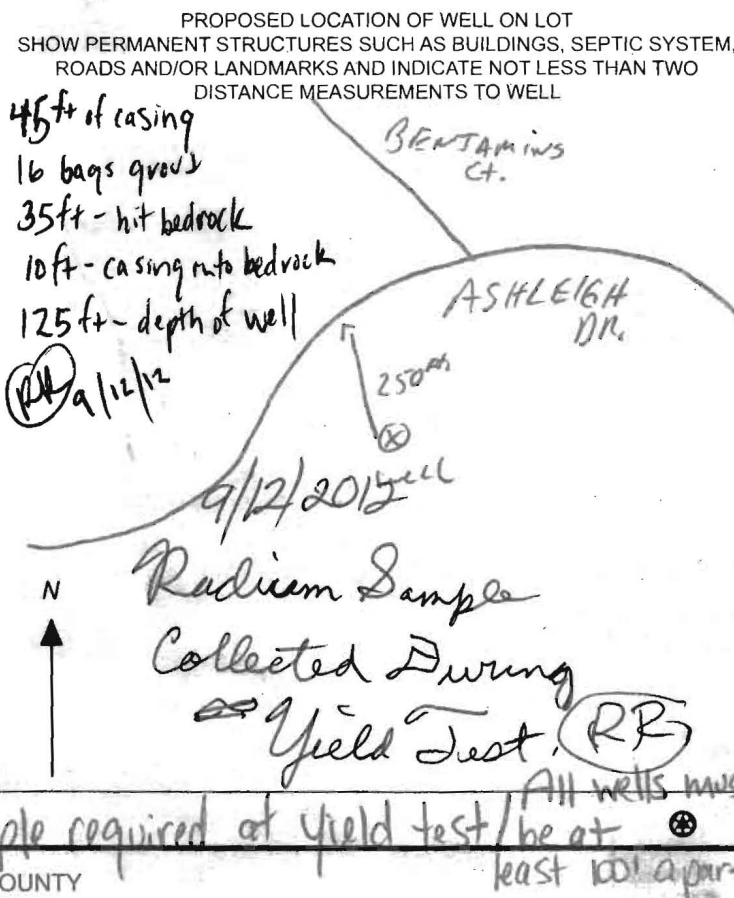 PROPOSED LOCATION OF WELL ON LOT
SHOW PERMANENT STRUCTURES SUCH AS BUILDINGS, SEPTIC SYSTEM,
ROADS AND/OR LANDMARKS AND INDICATE NOT LESS THAN TWO
DISTANCE MEASUREMENTS TO WELL
45ft of casing
16 bags grout
35ft - hit bedrock
10ft - casing into bedrock
125ft - depth of well
RR 9/12/12
BENJAMINS
Ct.
ASHLEIGH
DR.
250
well
9/12/2012
Radium Sample
Collected During
Yield Test. RR
N
All wells mus
ple required at yield test/be at
least 100' apar
OUNTY